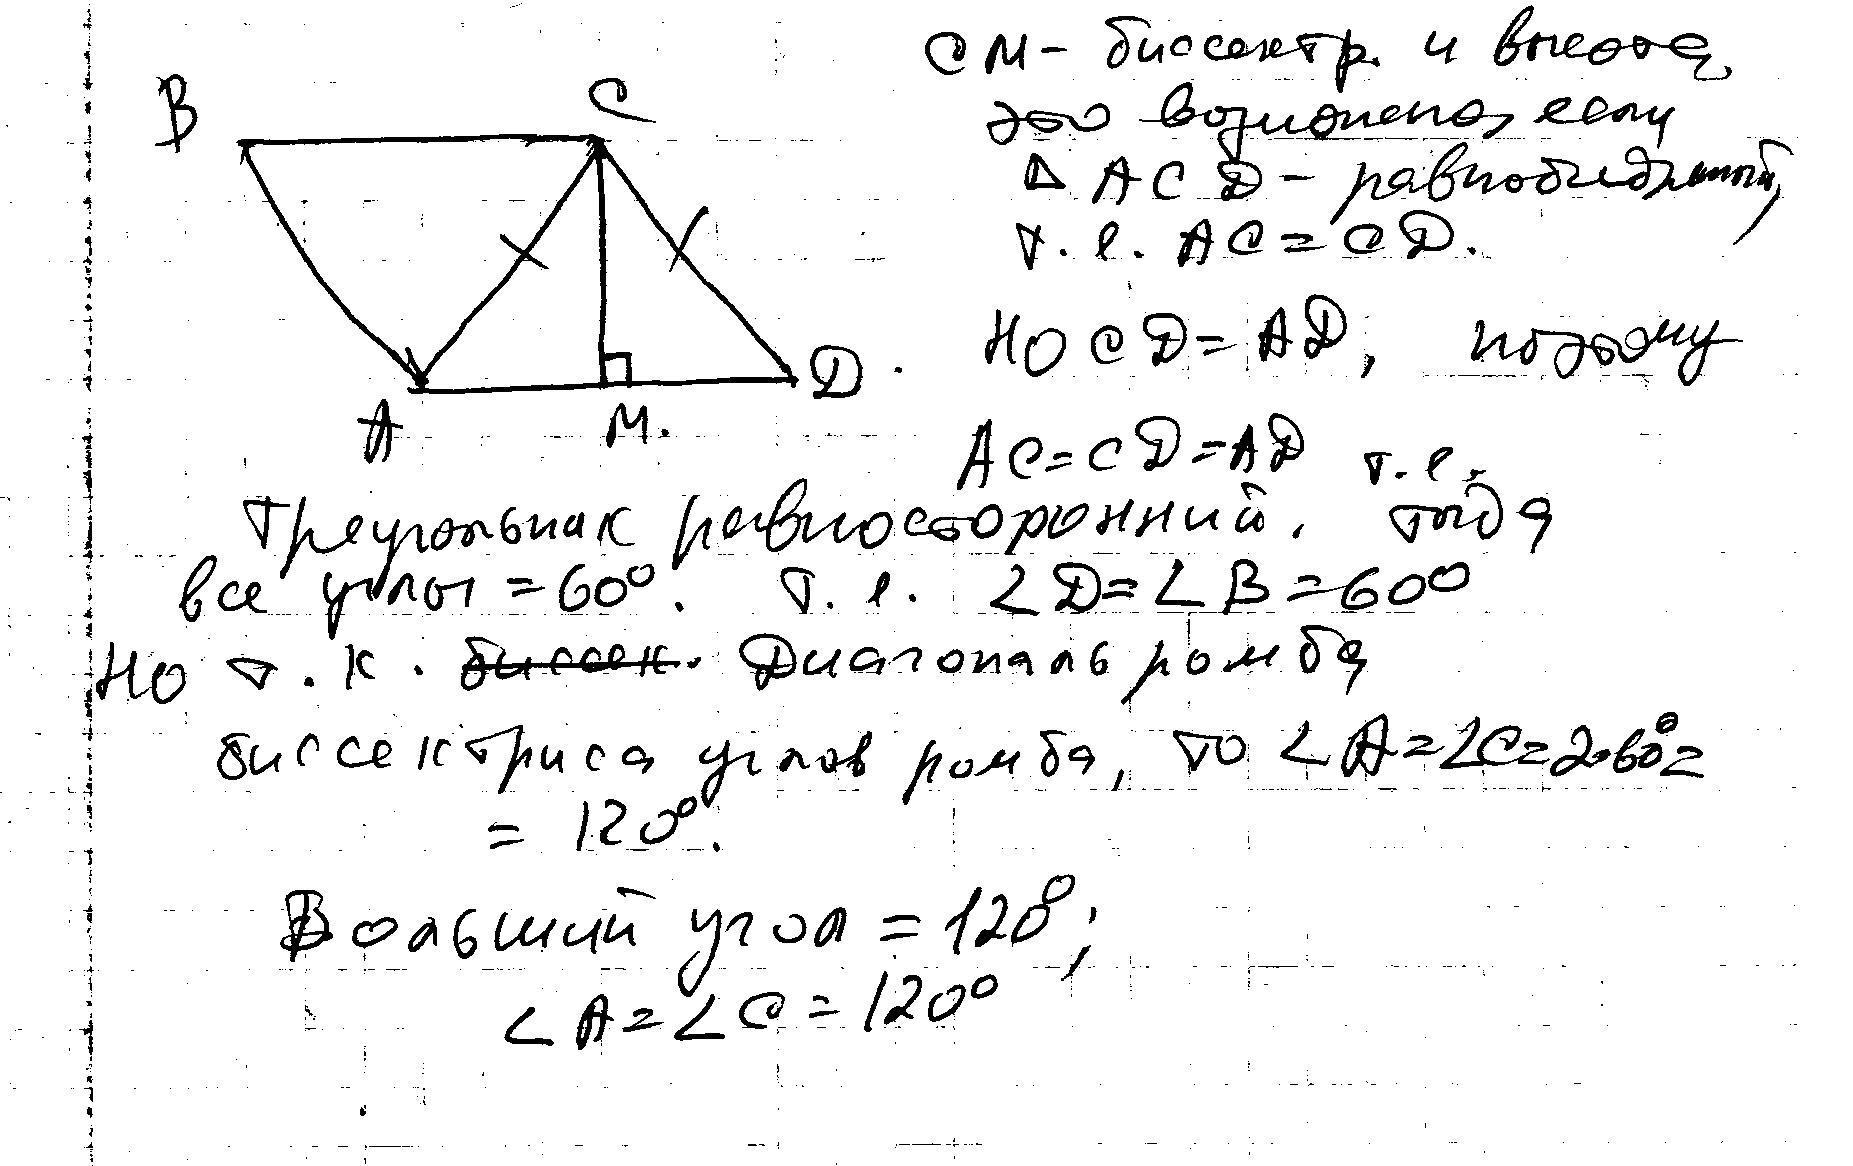 B
C
A
M.
D.
СМ - биссектр. и высота,
это возможно, если
Δ ACD - равнобедренный,
т.е. AC = CD.
Но CD = AD, поэтому
AC = CD = AD т.е.
треугольник равносторонний. Тогда
все углы = 60°. Т.е. ∠D = ∠B = 60°
Но т.к. биссек. Диагональ ромба
биссектриса углов ромба, то ∠A = ∠C = 2·60° =
= 120°.
Больший угол = 120°;
∠A = ∠C = 120°